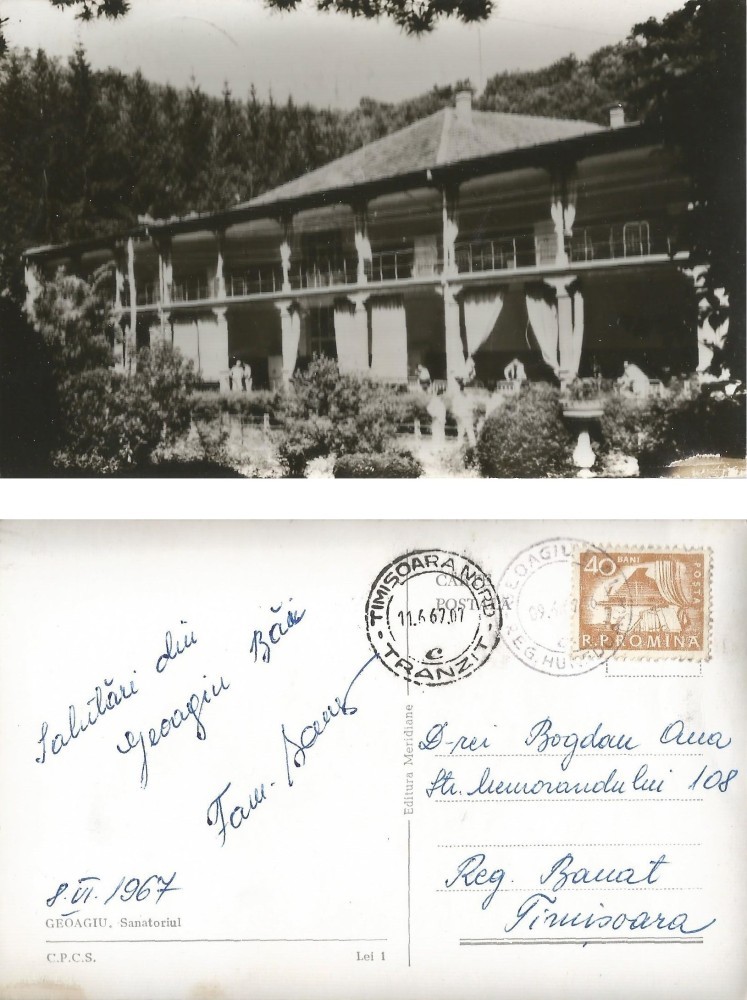 Salutări din
Geoagiu Băi
Fam.
8.VI.1967
GEOAGIU, Sanatoriul
C.P.C.S.
Lei 1
Editura Meridiane
CARTE
POSTALĂ
TIMISOARA NORD
11.6 67.07
C
TRANZIT
GEOAGIU
09.6.67
REG. HUNEDOARA
40 BANI
POSTA
R.P.ROMINA
D-rei Bogdan Ana
Str. Memorandului 108
Reg. Banat
Timisoara